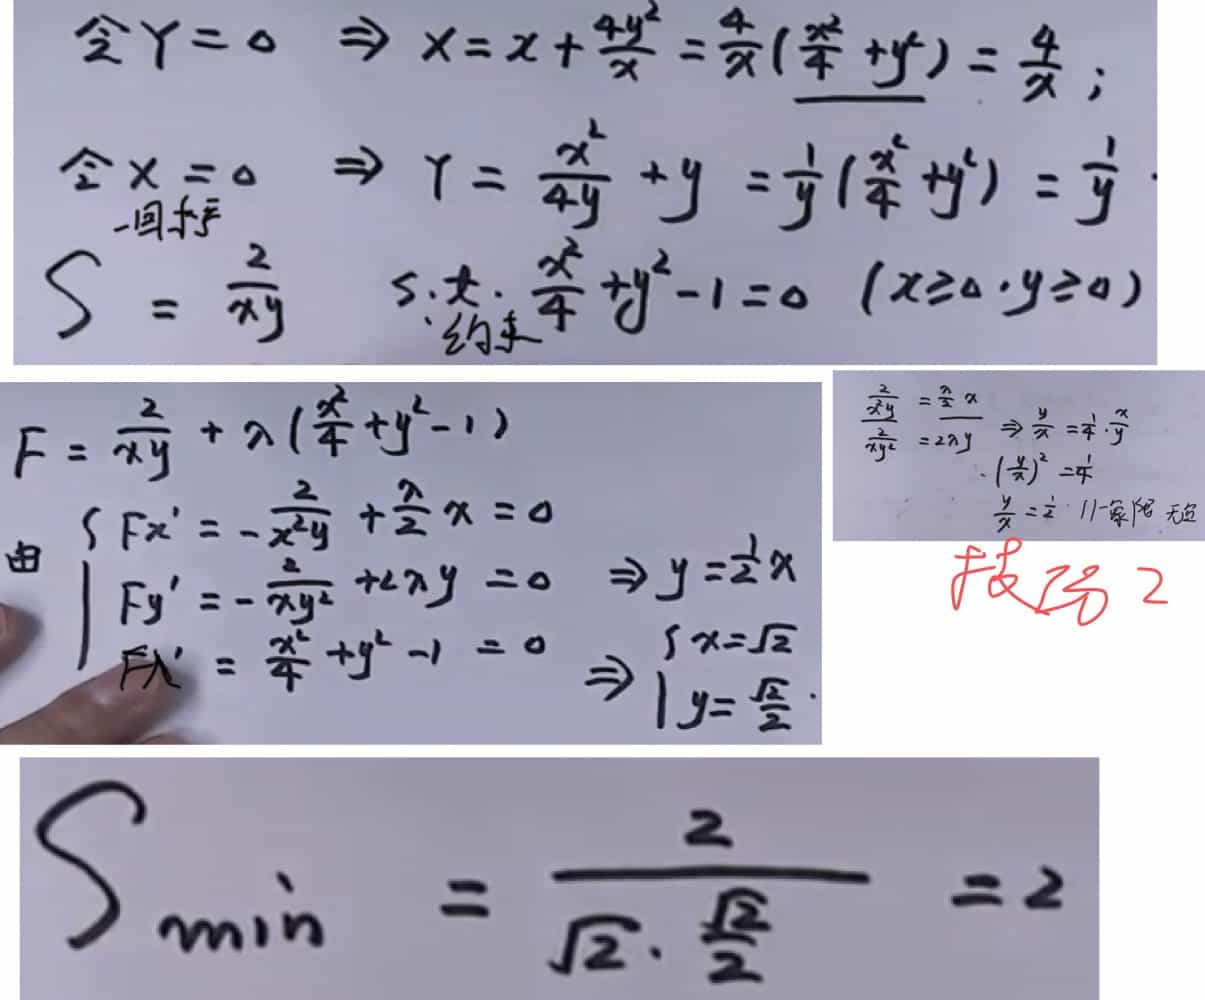 令Y=0 ⇒ X=x+\frac{4y^2}{x}=\frac{4}{x}(\frac{x^2}{4}+y^2)=\frac{4}{x};
令X=0 ⇒ Y=\frac{x^2}{4y}+y=\frac{1}{y}(\frac{x^2}{4}+y^2)=\frac{1}{y}.
S=\frac{2}{xy} s.t. \frac{x^2}{4}+y^2-1=0 (x≥0.y≥0)
约束
F=\frac{2}{xy}+λ(\frac{x^2}{4}+y^2-1)
由 { Fx'=-\frac{2}{x^2y}+\frac{λ}{2}x=0
Fy'=-\frac{2}{xy^2}+2λy=0 ⇒ y=\frac{1}{2}x
Fλ'=\frac{x^2}{4}+y^2-1=0 ⇒ { x=\sqrt{2}
y=\frac{\sqrt{2}}{2}.
\frac{2}{x^2y}=\frac{λ}{2}x
\frac{2}{xy^2}=2λy ⇒ \frac{y}{x}=\frac{1}{4}·\frac{x}{y}
(\frac{y}{x})^2=\frac{1}{4}
\frac{y}{x}=\frac{1}{2}.
技巧2
S_{min}=\frac{2}{\sqrt{2}·\frac{\sqrt{2}}{2}}=2